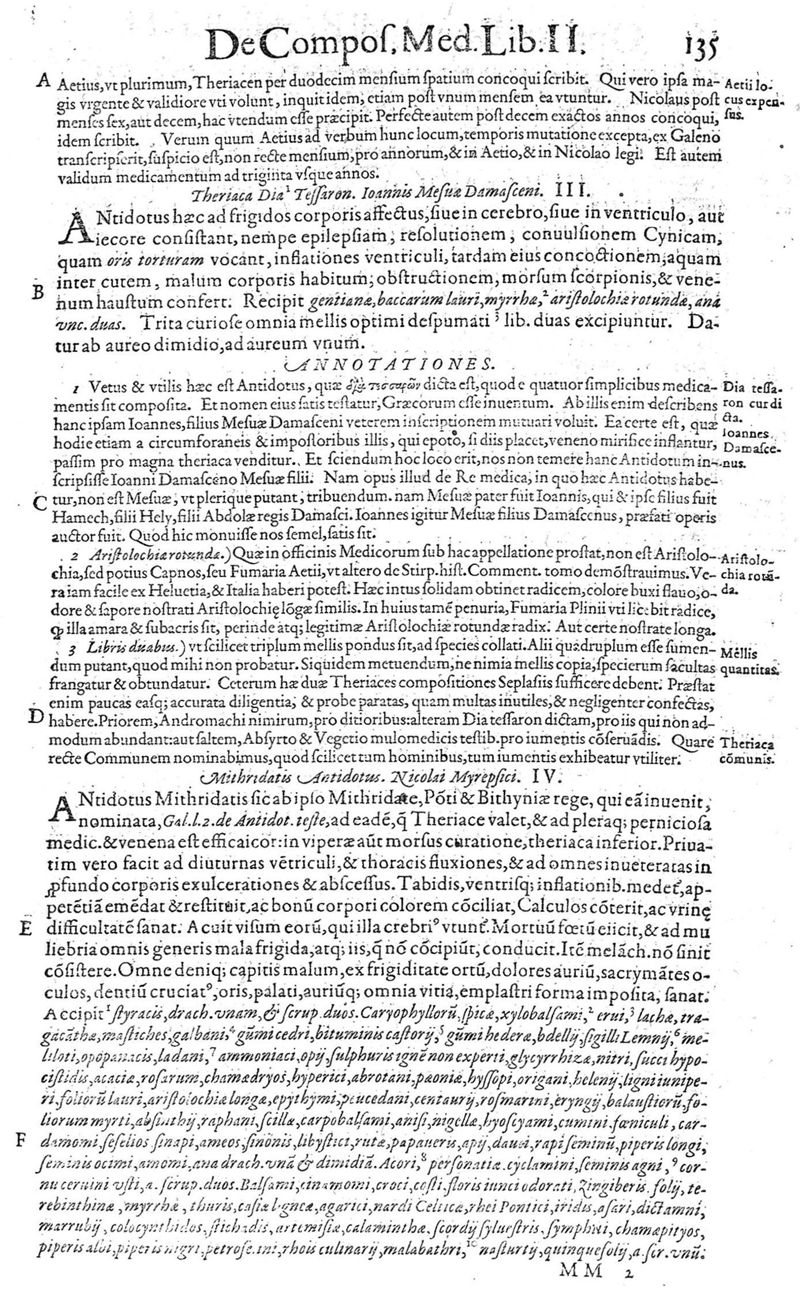 De Compos. Med. Lib. II. 135
A Aetius, vt plurimum, Theriacen per duodecim mensium spatium concoqui scribit. Qui vero ipsa ma- Aetii lo-
gis vrgente & validiore vti volunt, inquit idem, etiam post vnum mensem ea vtuntur. Nicolaus post cus expen-
menses sex, aut decem, hac vtendum esse præcipit. Perfecte autem post decem exactos annos concoqui, sus.
idem scribit. Verum quum Aetius ad verbum hunc locum, temporis mutatione excepta, ex Galeno
transcripserit, suspicio est, non recte mensium, pro annorum, & in Aetio, & in Nicolao legi. Est autem
validum medicamentum ad triginta vsque annos.
Theriaca Dia¹ Tessaron. Ioannis Mesuæ Damasceni. III.
ANtidotus hæc ad frigidos corporis affectus, siue in cerebro, siue in ventriculo, aut
iecore consistant, nempe epilepsiam, resolutionem, conuulsionem Cynicam,
quam oris torturam vocant, inflationes ventriculi, tardam eius concoctionem, aquam
inter cutem, malum corporis habitum, obstructionem, morsum scorpionis, & vene-
B
num haustum confert. Recipit gentianæ, baccarum lauri, myrrhæ,² aristolochiæ rotundæ, ana
vnc. duas. Trita curiose omnia mellis optimi despumati ³ lib. duas excipiuntur. Da-
tur ab aureo dimidio, ad aureum vnum.
ANNOTATIONES.
1 Vetus & vtilis hæc est Antidotus, quæ διὰ τεσσάρων dicta est, quod e quatuor simplicibus medica- Dia tessa-
mentis sit composita. Et nomen eius satis testatur, Græcorum esse inuentum. Ab illis enim describens ron cur di
hanc ipsam Ioannes, filius Mesuæ Damasceni veterem inscriptionem mutuari voluit. Ea certe est, quæ cta.
hodie etiam a circumforaneis & impostoribus illis, qui epoto, si diis placet, veneno mirifice inflantur, Ioannes
passim pro magna theriaca venditur. Et sciendum hoc loco erit, nos non temere hanc Antidotum in- Damasce-
scripsisse Ioanni Damasceno Mesuæ filii. Nam opus illud de Re medica, in quo hæc Antidotus habe- nus.
C tur, non est Mesuæ, vt plerique putant, tribuendum. nam Mesuæ pater fuit Ioannis, qui & ipse filius fuit
Hamech, filii Hely, filii Abdolæ regis Damasci. Ioannes igitur Mesuæ filius Damascenus, præfati operis
auctor fuit. Quod hic monuisse nos semel, satis sit.
2 Aristolochia rotunda.) Quæ in officinis Medicorum sub hac appellatione prostat, non est Aristolo- Aristolo-
chia, sed potius Capnos, seu Fumaria Aetii, vt altero de Stirp. hist. Comment. tomo demōstrauimus. Ve- chia rotū-
ra iam facile ex Heluetia, & Italia haberi potest. Hæc intus solidam obtinet radicem, colore buxi flauo, o- da.
dore & sapore nostrati Aristolochię lōgæ similis. In huius tamē penuria, Fumaria Plinii vti licebit radice,
ꝙ illa amara & subacris sit, perinde atq; legitimæ Aristolochiæ rotundæ radix. Aut certe nostrate longa.
3 Libris duabus.) vt scilicet triplum mellis pondus sit, ad species collati. Alii quadruplum esse sumen- Mellis
dum putant, quod mihi non probatur. Siquidem metuendum, ne nimia mellis copia, specierum facultas quantitas.
frangatur & obtundatur. Ceterum hæ duæ Theriaces compositiones Seplasiis sufficere debent. Præstat
enim paucas easq; accurata diligentia, & probe paratas, quam multas inutiles, & negligenter confectas,
D habere. Priorem, Andromachi nimirum, pro ditioribus: alteram Dia tessaron dictam, pro iis qui non ad-
modum abundant: aut saltem, Absyrto & Vegetio mulomedicis testib. pro iumentis cōseruādis. Quare Theriaca
recte Communem nominabimus, quod scilicet tum hominibus, tum iumentis exhibeatur vtiliter. cōmunis.
Mithridatis Antidotus. Nicolai Myrepsici. IV.
ANtidotus Mithridatis sic ab ipso Mithridate, Pōti & Bithyniæ rege, qui eā inuenit,
nominata, Gal. l. 2. de Antidot. teste, ad eadē, q̄ Theriace valet, & ad pleraq; perniciosa
medic. & venena est efficacior: in viperæ aūt morsus curatione, theriaca inferior. Priua-
tim vero facit ad diuturnas vētriculi, & thoracis fluxiones, & ad omnes inueteratas in
ꝓfundo corporis exulcerationes & abscessus. Tabidis, ventrisq; inflationib. medet̄, ap-
petētiā emēdat & restituit, ac bonū corpori colorem cōciliat, Calculos cōterit, ac vrinę
E difficultatē sanat. Acuit visum eorū, qui illa crebriꝰ vtunt̄. Mortuū fœtū eiicit, & ad mu
liebria omnis generis mala frigida, atq; iis, q̄ nō cōcipiūt, conducit. Itē melāch. nō sinit
cōsistere. Omne deniq; capitis malum, ex frigiditate ortū, dolores auriū, lacrymātes o-
culos, dentiū cruciatꝰ, oris, palati, auriūq; omnia vitia, emplastri forma imposita, sanat.
Accipit¹ styracis, drach. vnam, & scrup. duos. Caryophyllorū, spicæ, xylobalsami,² erui,³ lachæ, tra-
gacāthæ, mastiches, galbani,⁴ gūmi cedri, bituminis castorij,⁵ gūmi hederæ, bdellij, sigilli Lemnij,⁶ me-
liloti, opopanacis, ladani,⁷ ammoniaci, opij, sulphuris ignē non experti, glycyrrhizæ, nitri, succi hypo-
cistidis, acaciæ, rosarum, chamædryos, hyperici, abrotani, pæoniæ, hyssopi, origani, helenij, ligni iunipe-
ri, foliorū lauri, aristolochiæ longæ, epythymi, peucedani, centaurij, rosmarini, eryngij, balaustiorū, fo-
liorum myrti, absinthij, raphani, scillæ, carpobalsami, anisi, nigellæ, hyoscyami, cumini, fœniculi, car-
F damomi, seselios, sinapi, ameos, sinonis, libystici, rutæ, papaueris, apij, dauci, rapi seminū, piperis longi,
seminis ocimi, amomi, ana drach. vnā & dimidiā. Acori,⁸ personatiæ, cyclamini, seminis agni,⁹ cor-
nu ceruini vsti, a. scrup. duos. Balsami, cinamomi, croci, costi, floris iunci odorati, zingiberis, folij, te-
rebinthinæ, myrrhæ, thuris, casiæ ligneæ, agarici, nardi Celticæ, rhei Pontici, iridis, asari, dictamni,
marrubij, colocynthidos, stichadis, artemisiæ, calaminthæ, scordij syluestris, symphiti, chamæpityos,
piperis albi, piperis nigri, petroselini, rhois culinarij, malabathri,¹⁰ nasturtij, quinquefolij, a. scr. vnū.
MM 2